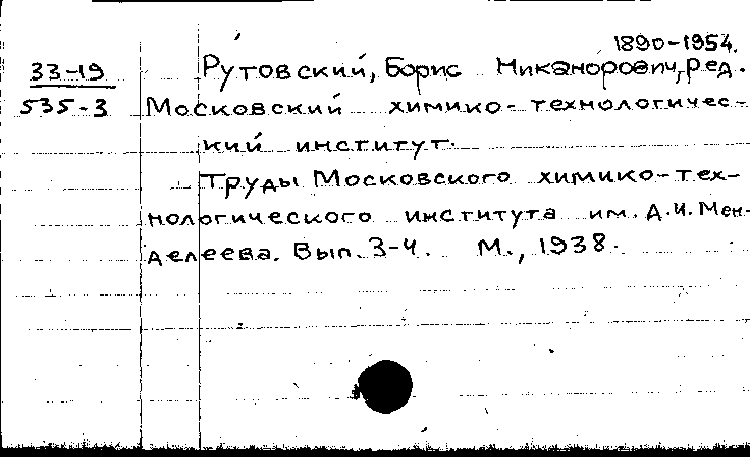 1890-1954.
33-19 Рутовский, Борис Никанорович, ред.
535-3 Московский химико-технологичес-
кий институт.
Труды Московского химико-тех-
нологического института им. Д.И. Мен-
делеева. Вып. 3-4. М., 1938.